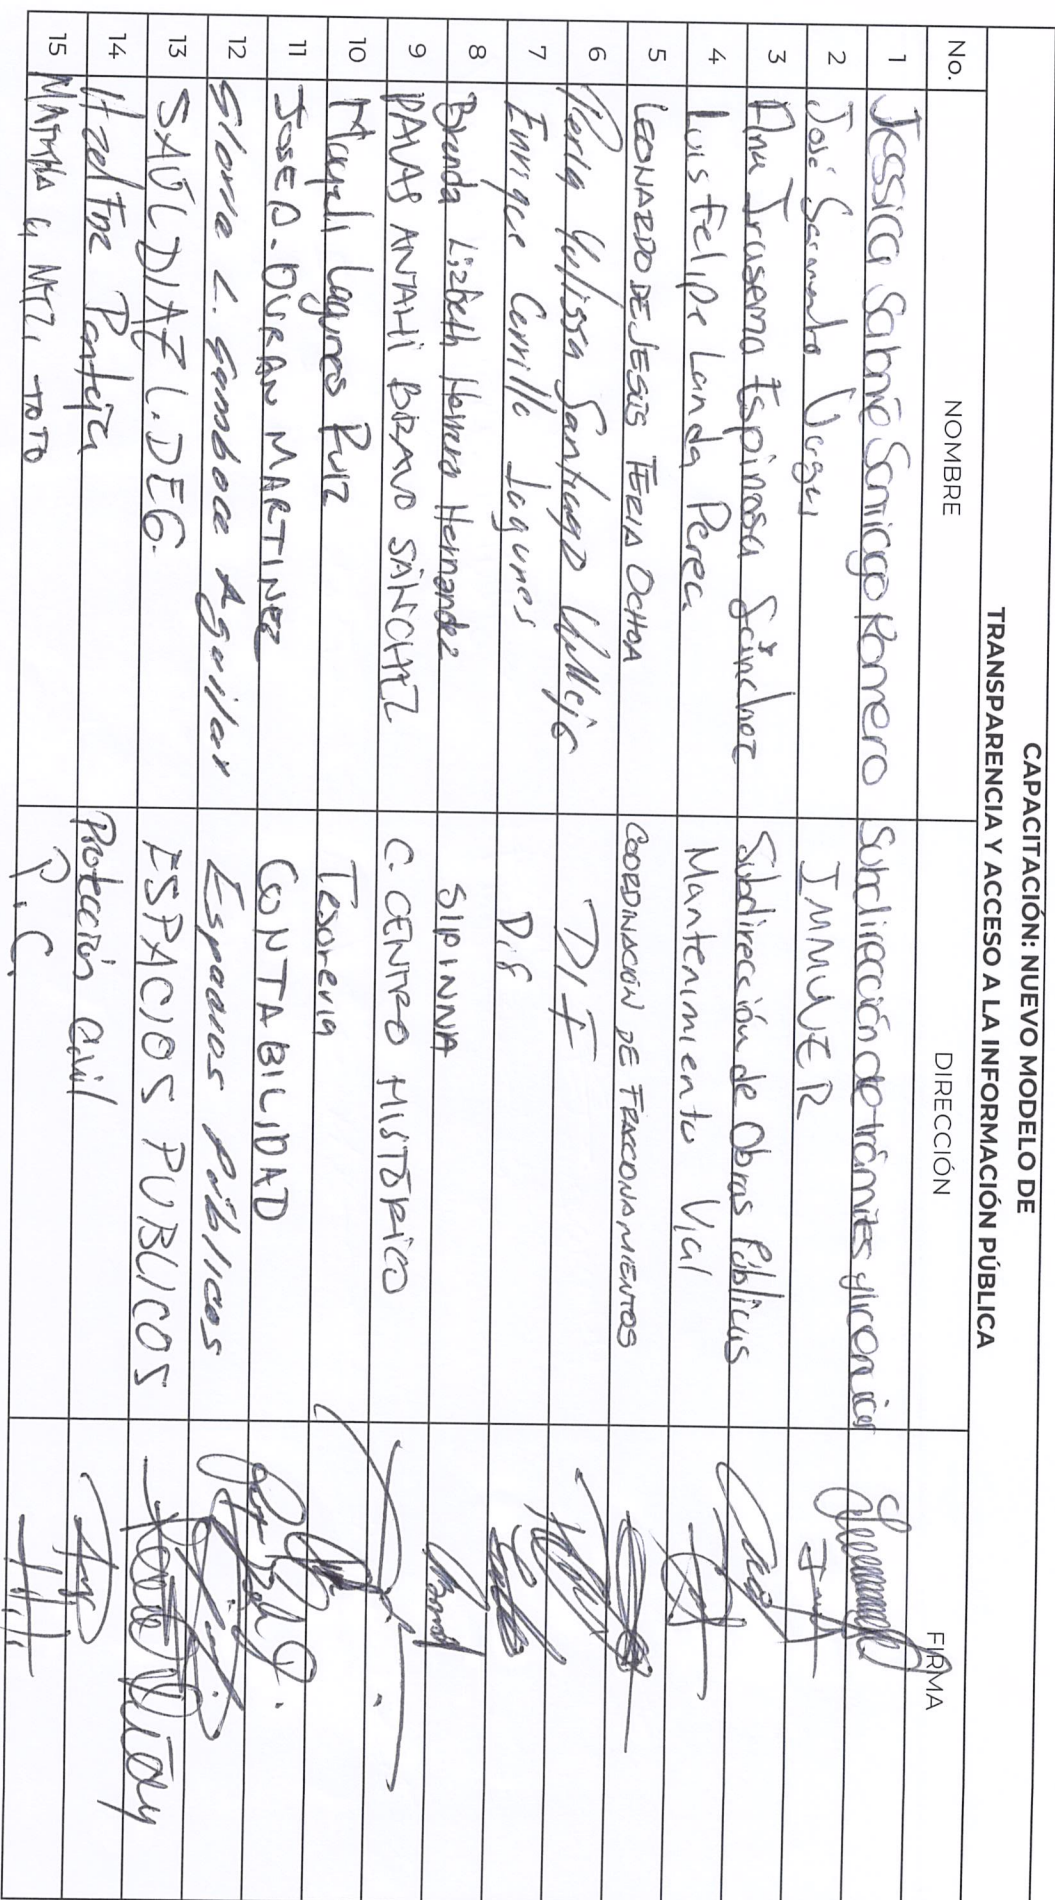 CAPACITACIÓN: NUEVO MODELO DE
TRANSPARENCIA Y ACCESO A LA INFORMACIÓN PÚBLICA
No. NOMBRE DIRECCIÓN FIRMA
1 Jessica Sabrine Santiago Romero Subdirección de trámites y licencias
2 José Sarmiento Vargas IMMUVER
3 Ana Irasema Espinosa Sánchez Subdirección de Obras Públicas
4 Luis Felipe Landa Perea Mantenimiento Vial
5 LEONARDO DE JESUS FERIA OCHOA COORDINACIÓN DE FRACCIONAMIENTOS
6 Perla Yulissa Santiago Vallejo DIF
7 Enrique Carrillo Lagunes Dif
8 Brenda Lizbeth Herrera Hernandez SIPINNA
9 PALAS ANTAHÍ BRAVO SÁNCHEZ C. CENTRO HISTÓRICO
10 Mayeli Lagunes Ruiz Tesoreria
11 JOSE D. DURAN MARTINEZ CONTABILIDAD
12 Gloria L. Gamboa Aguilar Espacios Públicos
13 SAÚL DIAZ L. DE G. ESPACIOS PUBLICOS
14 Pantoja Protección Civil
15 MARTHA G MTZ. TOTO P. C.